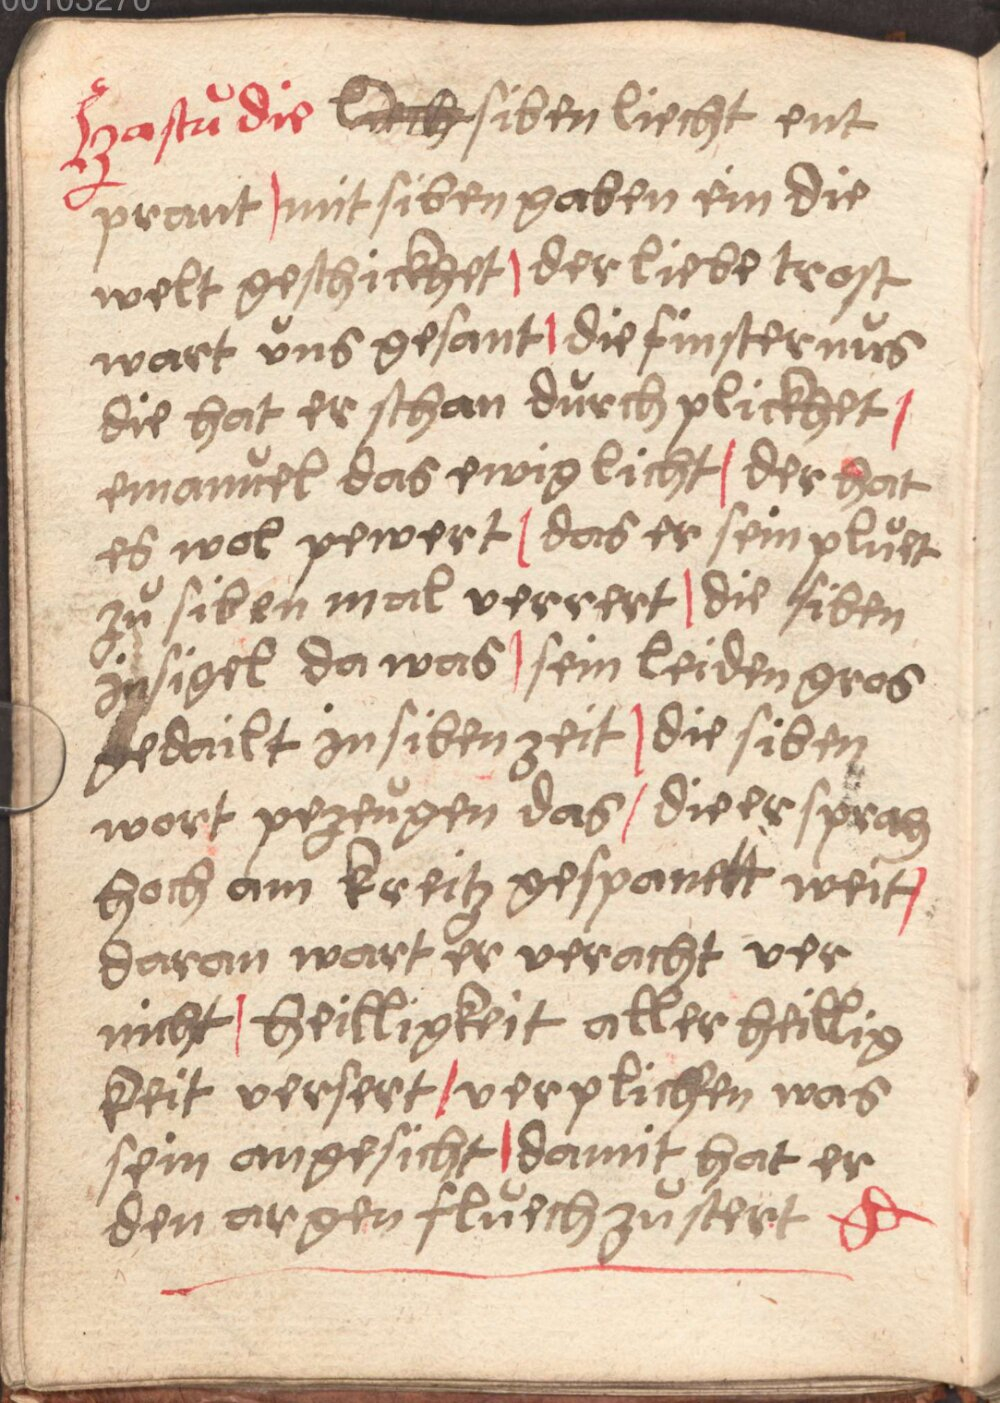 00103270
Hastu die siben liecht ent
prant / mit siben gaben ein die
welt geschickhet / der liebe trost
wart uns gesant / die finsternus
die hat er schan durch plickhet /
emanuel das ewig licht / der hat
es wol pewert / das er sein pluet
zu siben mal verrert / die siben
insigel da was / sein leiden gros
gedailt in siben zeit / die siben
wort pezeugen das / die er sprach
hoch am kreitz gespanett weit /
daran wart er veracht ver
nicht / heilligkeit aller heillig
keit versert / verplichen was
sein angesicht / damit hat er
den argen fluech zustert